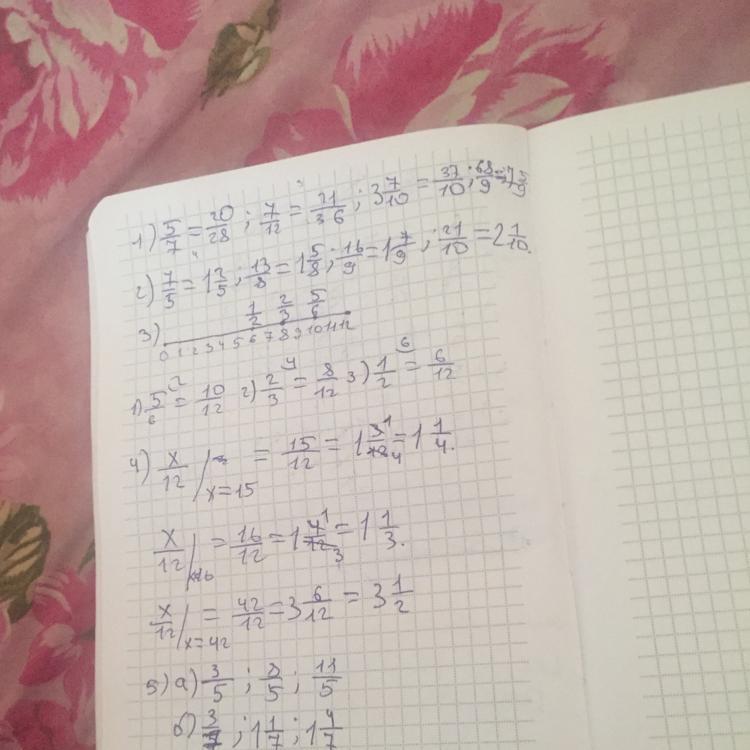 1) 5/7 = 20/28 ; 7/12 = 21/36 ; 3 7/10 = 37/10 ; 68/9 = 7 5/9
2) 7/5 = 1 2/5 ; 13/8 = 1 5/8 ; 16/9 = 1 7/9 ; 21/10 = 2 1/10.
1/2 2/3 5/6
3) 0 1 2 3 4 5 6 7 8 9 10 11 12
1) 5/6 = 10/12 2) 2/3 = 8/12 3) 1/2 = 6/12
4) x/12 / x=15 = 15/12 = 1 3/12 = 1 1/4.
x/12 / x=16 = 16/12 = 1 4/12 = 1 1/3.
x/12 / x=42 = 42/12 = 3 6/12 = 3 1/2
5) а) 3/5 ; 8/5 ; 11/5
б) 3/7 ; 1 1/7 ; 1 4/7